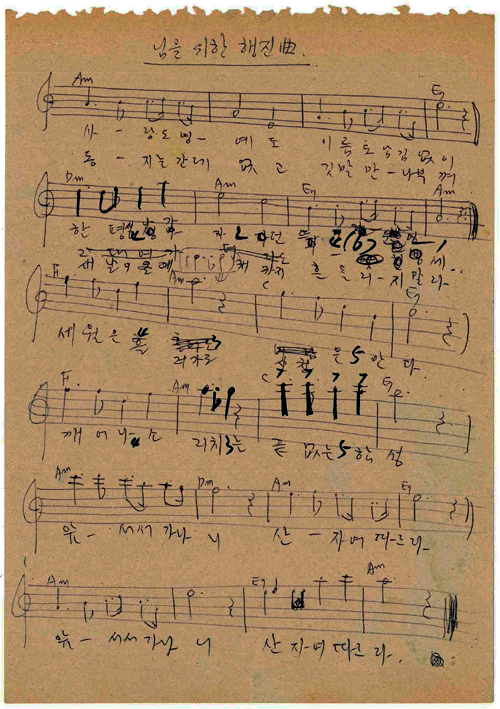 님을 위한 행진曲
Am E7
사 - 랑도 명 - 예도 이름도 남김 없이
동 - 지는 간데 없고 깃발만 - 나부껴
Dm Am E7 Am
한 평생
새 날이 올때 까지 흔들리 - 지 말라
F Am C E7
세월은 흘 러가도 은 안다
F Am C E7
깨어나 소리치는 끝없는 함성
Am Dm Am E7
앞 - 서서 가나니 산 - 자여 따르라
Am E7 Am
앞 - 서서 가나니 산 자여 따르라.